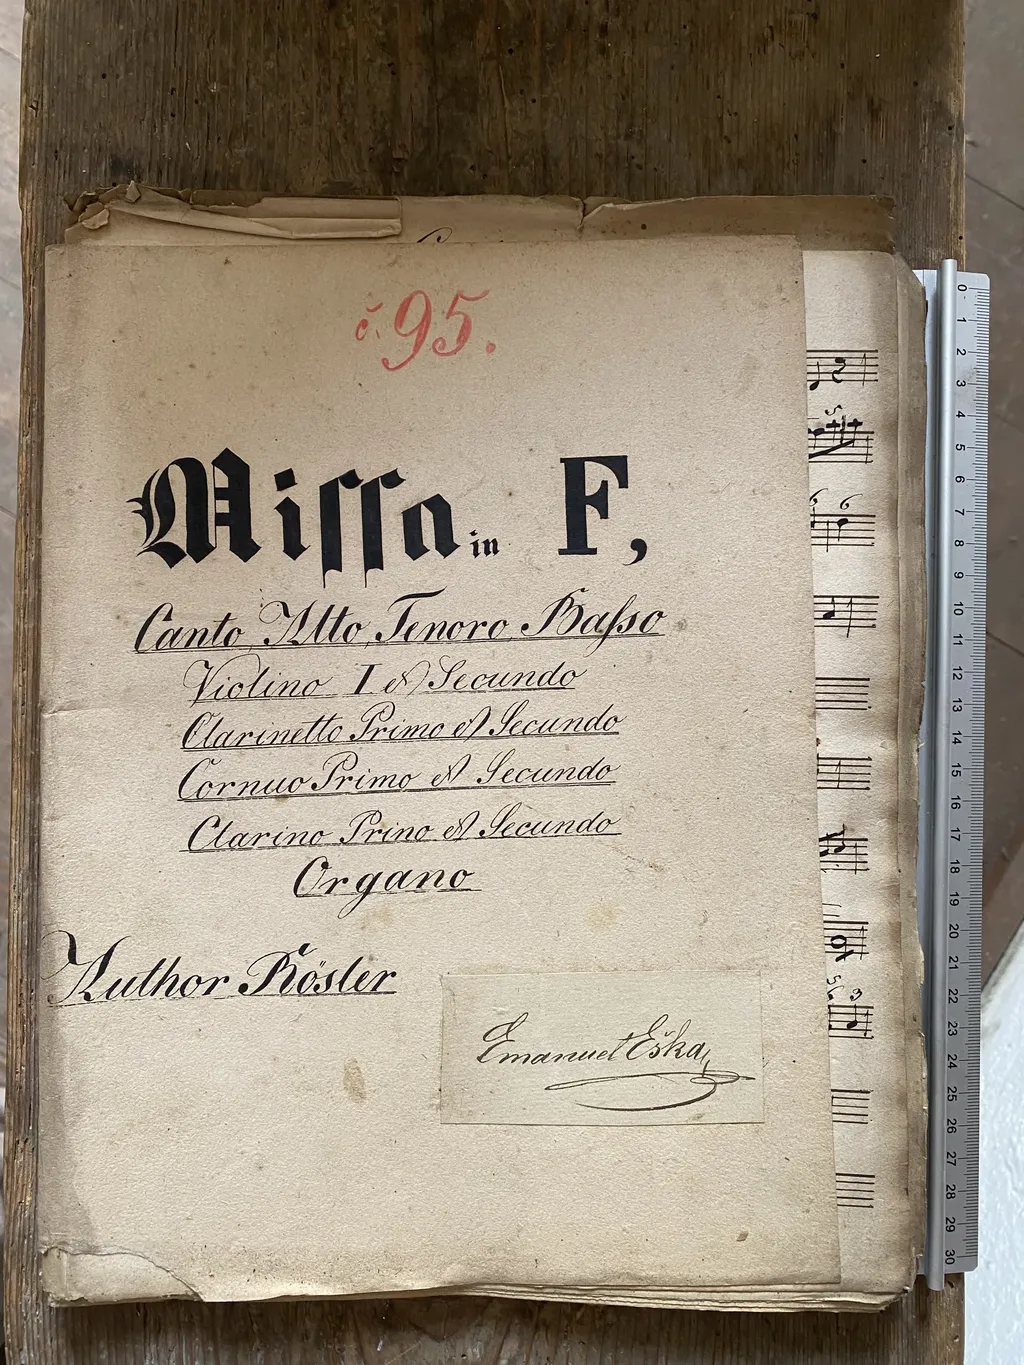 č. 95.
Miſſa in F,
Canto, Alto, Tenoro, Baſso
Violino I & Secundo
Clarinetto Primo & Secundo
Cornuo Primo & Secundo
Clarino Prino & Secundo
Organo
Author Rösler
Emanuel Eška
0 1 2 3 4 5 6 7 8 9 10 11 12 13 14 15 16 17 18 19 20 21 22 23 24 25 26 27 28 29 30